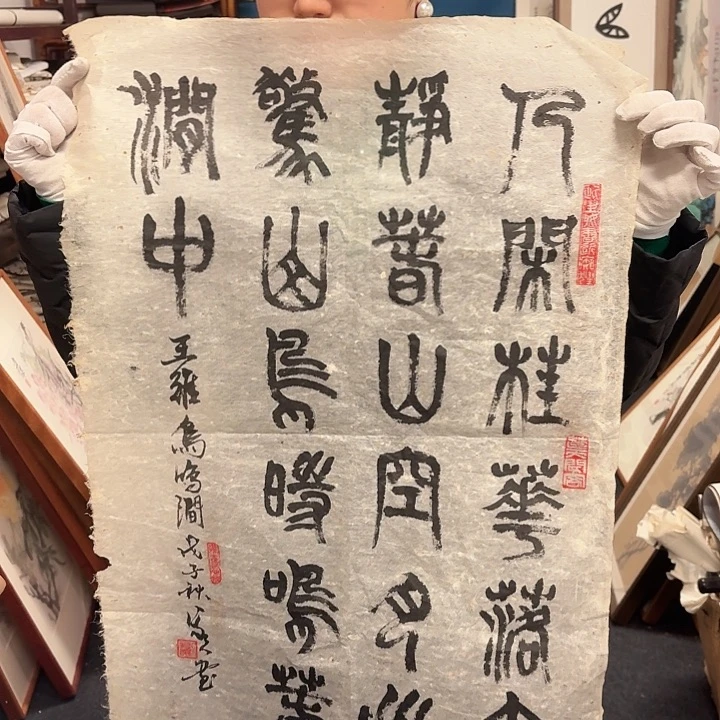 人閑桂華落
靜春山空月
驚山鳥時鳴
澗中
王維鳥鳴澗戊子秋